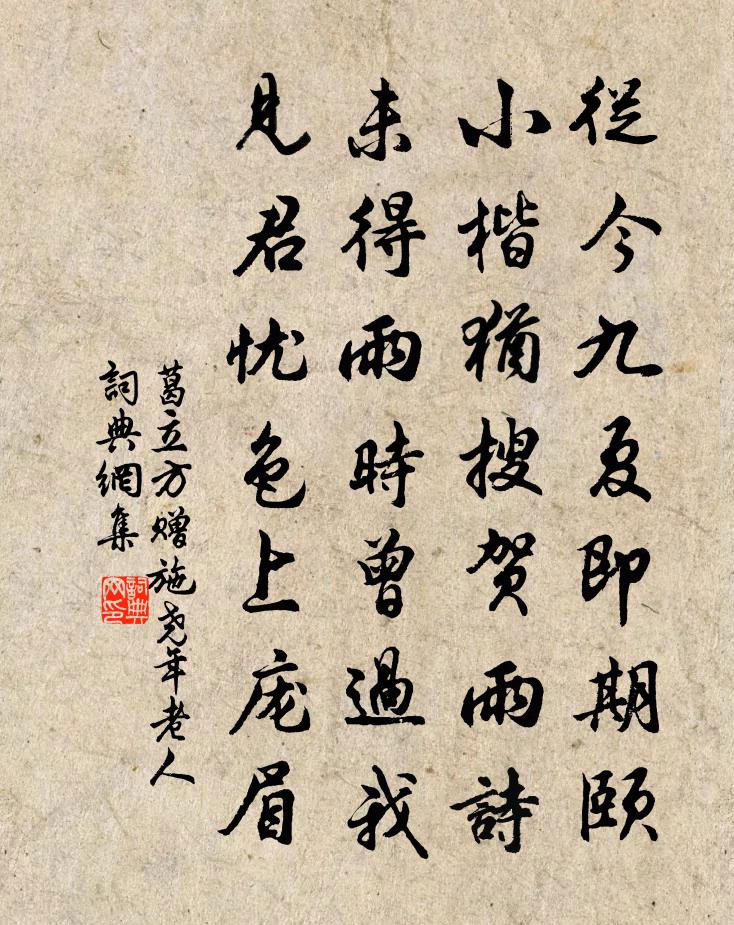 從今九夏即期颐
小楷猶搜贺雨詩
未得雨時曾過我
見君忧色上庞眉
葛立方赠施尧年老人
詞典網集
詞典